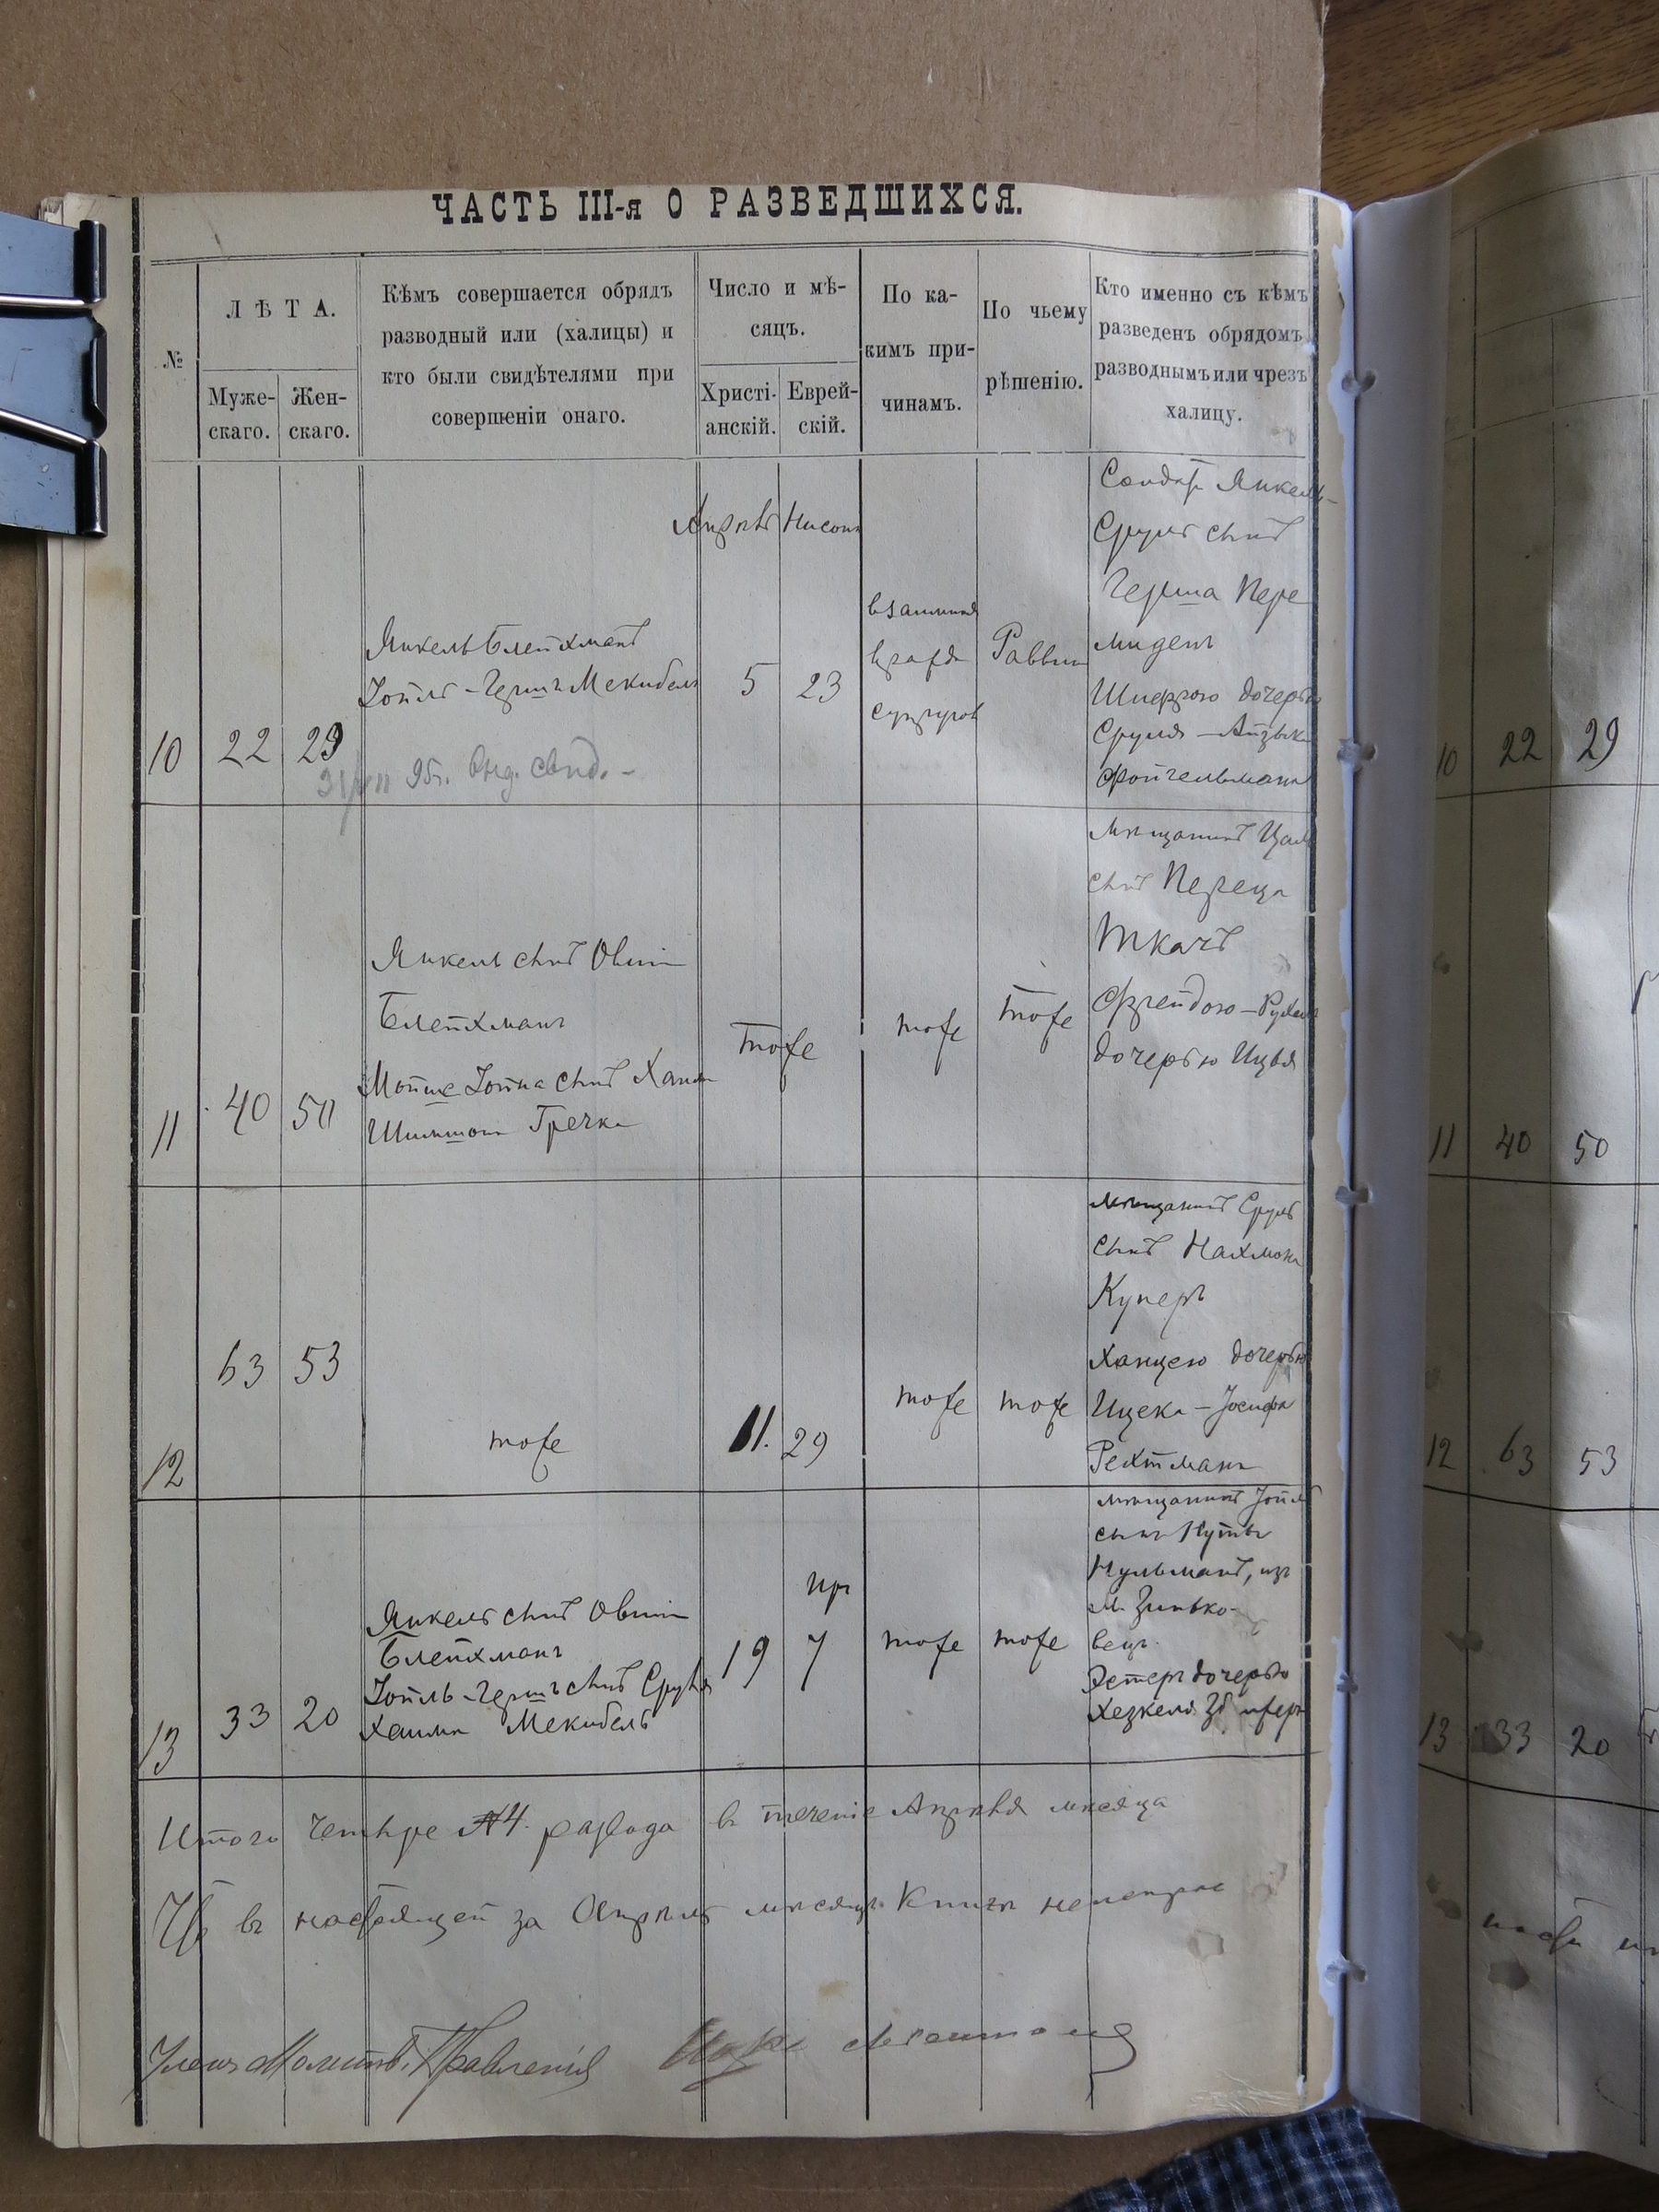 ЧАСТЬ III-я О РАЗВЕДШИХСЯ.
№
ЛѢТА.
Муже-
скаго.
Жен-
скаго.
Кѣмъ совершается обрядъ
разводный или (халицы) и
кто были свидѣтелями при
совершеніи онаго.
Число и мѣ-
сяцъ.
Христі-
анскій.
Еврей-
скій.
По ка-
кимъ при-
чинамъ.
По чьему
рѣшенію.
Кто именно съ кѣмъ
разведенъ обрядомъ
разводнымъ или чрезъ
халицу.
10
22
29
Янкель Блейхманъ
Іойль-Гершъ Мекибель
95г. выд. свид.
Апрѣль
5
Нисонъ
23
взаимная
вражда
супруговъ
Раввин
Янкель-
Сруль сынъ
Герша Пере
Шифрою дочерью
Сруля-Айзыка
Фойгельмана
11
40
50
Янкель сынъ Овши
Блейхманъ
Мойше Іойна сынъ Хаим
Шимшона Гречка
тоже
тоже
тоже
мѣщанинъ
сынъ Переца
Ткачъ
Фрейдою-Рухл
дочерью
12
63
53
тоже
11.
29
тоже
тоже
мѣщанинъ Сруль
сынъ Нахмона
Куперъ
Ханцею дочерью
Ицека-Іосифа
Рехтманъ
13
33
20
Янкель сынъ Овши
Блейхманъ
Іойль-Гершъ сынъ Сруля
Хаима Мекибель
19
Ир
7
тоже
тоже
мѣщанинъ Іойль
сынъ Нуты
Нульманъ, изъ
м. Зинько-
вецъ
Эстеръ дочерью
Хезкеля
Итого четыре 4. развода въ теченіе Апрѣля мѣсяца
Что въ настоящей за Апрѣль мѣсяцъ Книги
Членъ Молитв. Правленія
10
22
29
11
40
50
12
63
53
13
33
20